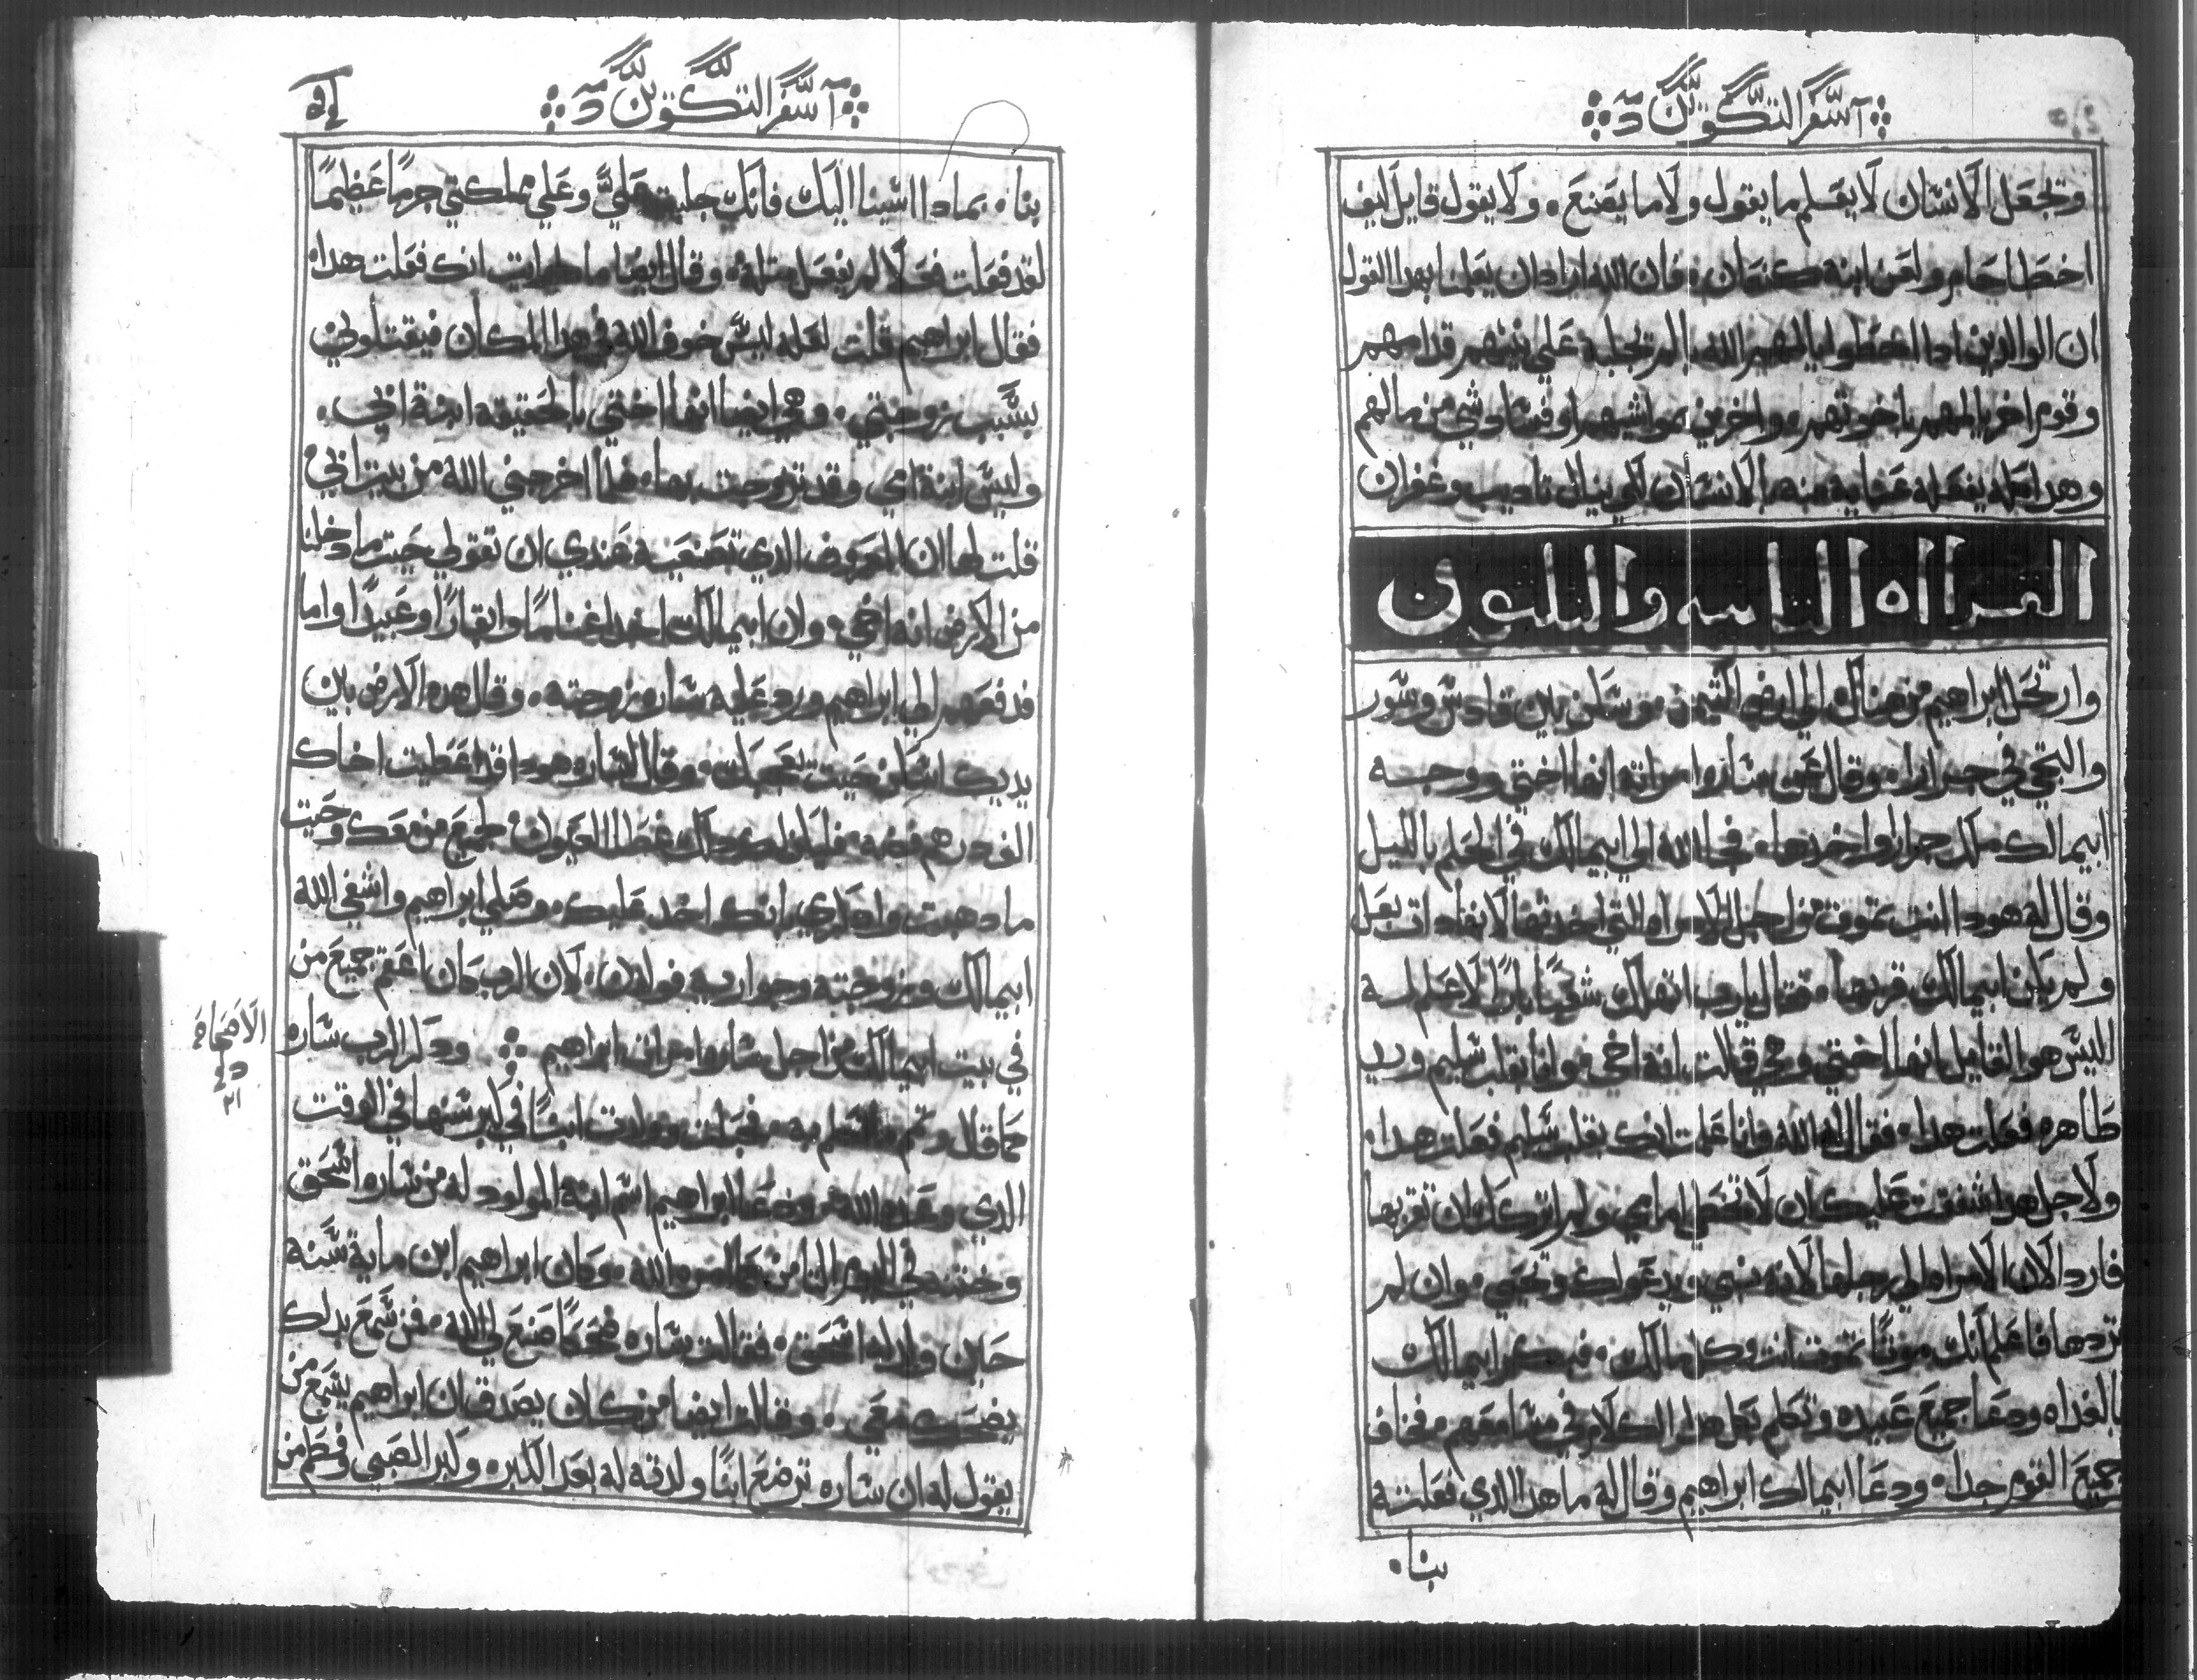 سفر التكوين
وتجعل الانسان لا يعلم ما يقول ولا ما يصنع ٠ ولا يقول قايل كيف
اخطا حام ولعن ابنه كنعان ٠ فان الله اراد ان يعلمنا بهدا القول
ان الوالدين ادا اخطوا يالمهم الله بالم تجلبه علي بنيهم قدامهم
وقوم اخر يالمهم باخوتهم ٠ واخرين بمواشيهم او فساد شي من مالهم
وهدا كله يفعله عنايه منه بالانسان لكي ينال تاديب وغفران
القراه التامنه والتلتون
وارتحل ابراهيم من هناك الي ارض التيمن وسكن بين قادس وسور
والتجي في جرارا ٠ وقال عن ساره امراته انها اختي ووجه
ابيمالك ملك جرارا واخدها ٠ فجا الله الي ابيمالك في الحلم بالليل
وقال له هودا انت تموت من اجل الامراه التي اخدتها لانها دات بعل
ولم يكن ابيمالك قربها ٠ فقال يارب اتهلك شعبًا بارًا لا علم له
اليس هو القايل انها اختي وهي قالت انه اخي ٠ وانا بقلب سليم ويد
طاهره فعلت هدا ٠ فقال له الله وانا علمت انك بقلب سليم فعلت هدا ٠
ولاجل هدا شفقت عليك ان لا تخطي امامي ولم اتركك ان تقربها
فارد الان الامراه الي رجلها لانه نبي ٠ ويدعو لك وتحيي ٠ وان لم
تردها فاعلم انك موتًا تموت انت وكل مالك ٠ فبكر ابيمالك
بالغداه ودعا جميع عبيده وتكلم بكل هدا الكلام في مسامعهم ٠ فخاف
جميع القوم جدا ٠ ودعا ابيمالك ابراهيم وقال له ما هدا الدي فعلته
بنا ٠
سفر التكوين
بنا ٠ بمادا اسينا اليك فانك جلبت علي وعلي مملكتي جرمًا عظيمًا
لقد فعلت فعلا لم يفعل مثله ٠ وقال ايضا ما رايت انك فعلت هدا ٠
فقال ابراهيم قلت لعله ليس خوف الله في هدا المكان فيقتلوني
بسبب زوجتي ٠ وهي ايضا انها اختي بالحقيقه ابنة ابي ٠
وليس ابنة امي وقد تزوجت بها ٠ فلما اخرجني الله من بيت ابي
قلت لها ان المعروف الدي تصنعيه عندي ان تقولي حيت ما دخلنا
من الارض انه اخي ٠ وان ابيمالك اخد اغنامًا وابقارًا وعبيدًا واما
فدفعهم الي ابراهيم ورد عليه ساره زوجته ٠ وقال هده الارض بين
يديك اسكن حيت يعجبك ٠ وقال لساره هودا قد اعطيت اخاك
الف درهم فضه ٠ فليكن لك دلك غطا العيون لجميع من معك وحيت
ما دهبت وادكري انك اخد عليك ٠ وصلي ابراهيم واشفي الله
ابيمالك وزوجته وجواريه فولدن ٠ لان الرب كان اعقم جميع من
في بيت ابيمالك من اجل ساره امراة ابراهيم ودكر الرب ساره
الاصحاح
٢١
كما قال وتم ما تكلم به ٠ فحبلت وولدت ابنًا في كبر سنها في الوقت
الدي وعده الله ٠ ودعا ابراهيم اسم ابنه المولود له من ساره اسحق
وختنه في اليوم التامن كما امره الله ٠ وكان ابراهيم ابن ماية سنه
حين ولد له اسحق ٠ فقالت ساره ضحكا صنع لي الله ٠ فمن سمع بدلك
يضحك معي ٠ وقالت ايضا من كان يصدق ان ابراهيم يسمع من
يقول له ان ساره ترضع ابنًا ولدته له بعد الكبر ٠ وكبر الصبي وفطم من